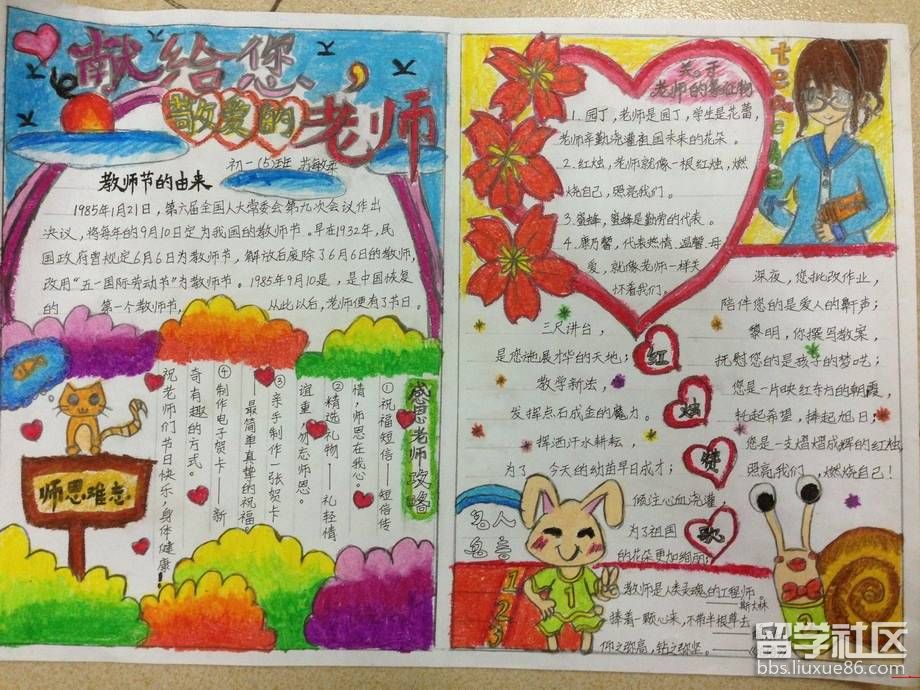 献给您、
敬爱的老师
初一(5)班
教师节的由来
1985年1月21日，第六届全国人大常委会第九次会议作出
决议，将每年的9月10日定为我国的教师节。早在1932年，民
国政府曾规定6月6日为教师节，解放后废除了6月6日的教师，
改用“五一国际劳动节”为教师节。1985年9月10是，是中国恢复
的 第一个教师节， 从此以后，老师便有了节日。
感恩老师攻略
①祝福短信——短信传
情，师恩在我心。
②精选礼物——礼轻情
谊重，勿忘师恩。
③亲手制作一张贺卡
——最简单真挚的祝福
④制作电子贺卡——新
奇有趣的方式。
祝老师们节日快乐、身体健康！
师恩难忘
关于
老师的象征物
1.园丁，老师是园丁，学生是花蕾，
老师辛勤浇灌祖国未来的花朵。
2.红烛，老师就像一根红烛，燃
烧自己，照亮我们。
3.蜜蜂，蜜蜂是勤劳的代表。
4.康乃馨，代表热情、温馨、母
爱，就像老师一样关
怀着我们。
红
烛
赞
歌
三尺讲台，
是您施展才华的天地；
教学新法，
发挥点石成金的魔力。
挥洒汗水耕耘，
为了 今天的幼苗早日成才；
倾注心血浇灌，
为了祖国
的花朵更加绚丽；
深夜，您批改作业，
陪伴您的是爱人的鼾声；
黎明，你撰写教案，
抚慰您的是孩子的梦呓；
您是一片映红东方的朝霞，
牝起希望，捧起旭日；
您是一支熠熠成辉的红烛，
照亮我们，燃烧自己！
名人
名言
1
2
3
教师是人类灵魂的工程师。
——斯大林
捧着一颗心来，不带半根草去
仰之弥高，钻之弥坚。
1
2
留学社区
bbs.liuxue86.com